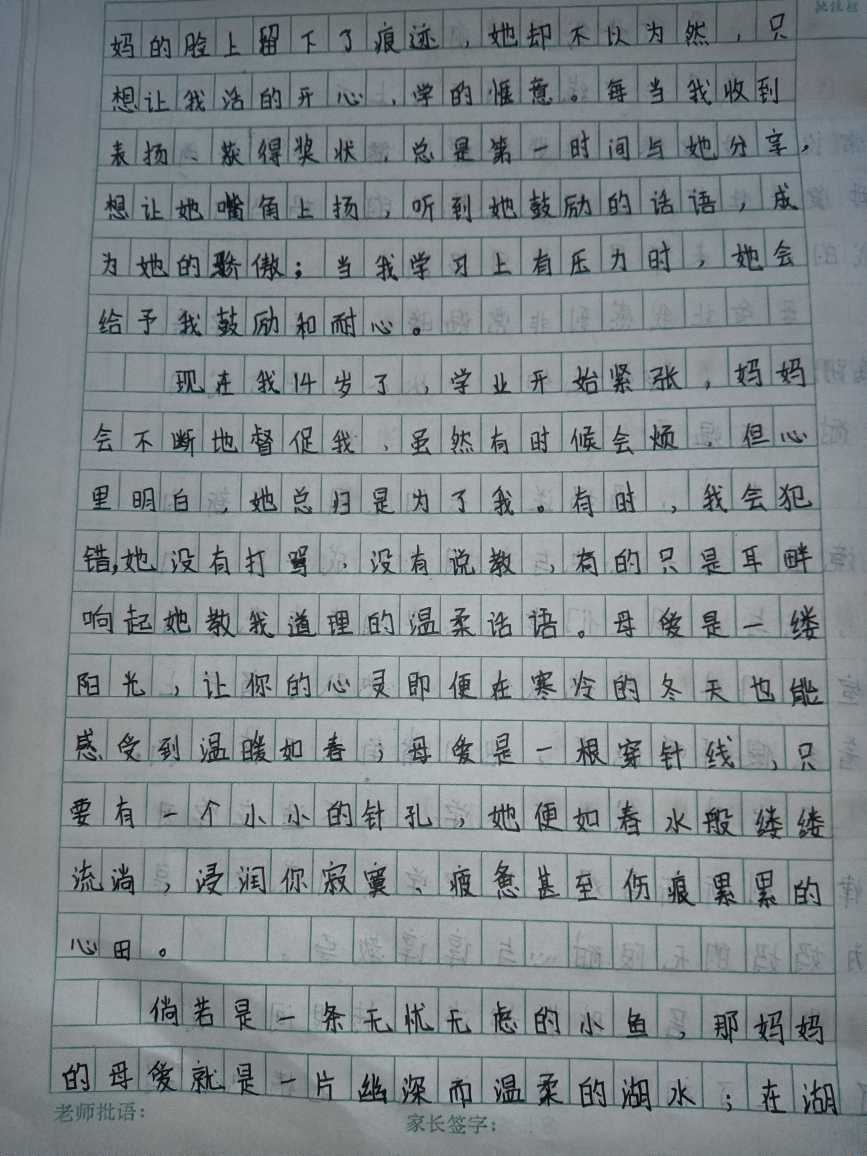 妈的脸上留下了痕迹，她却不以为然，只
想让我活的开心，学的惬意。每当我收到
表扬、获得奖状，总是第一时间与她分享，
想让她嘴角上扬，听到她鼓励的话语，成
为她的骄傲；当我学习上有压力时，她会
给予我鼓励和耐心。
现在我14岁了，学业开始紧张，妈妈
会不断地督促我，虽然有时候会烦，但心
里明白，她总归是为了我。有时，我会犯
错，她没有打骂，没有说教，有的只是耳畔
响起她教我道理的温柔话语。母爱是一缕
阳光，让你的心灵即便在寒冷的冬天也能
感受到温暖如春；母爱是一根穿针线，只
要有一个小小的针孔，她便如春水般缕缕
流淌，浸润你寂寞、疲惫甚至伤痕累累的
心田。
倘若是一条无忧无虑的小鱼，那妈妈
的母爱就是一片幽深而温柔的湖水；在湖
老师批语：
家长签字：